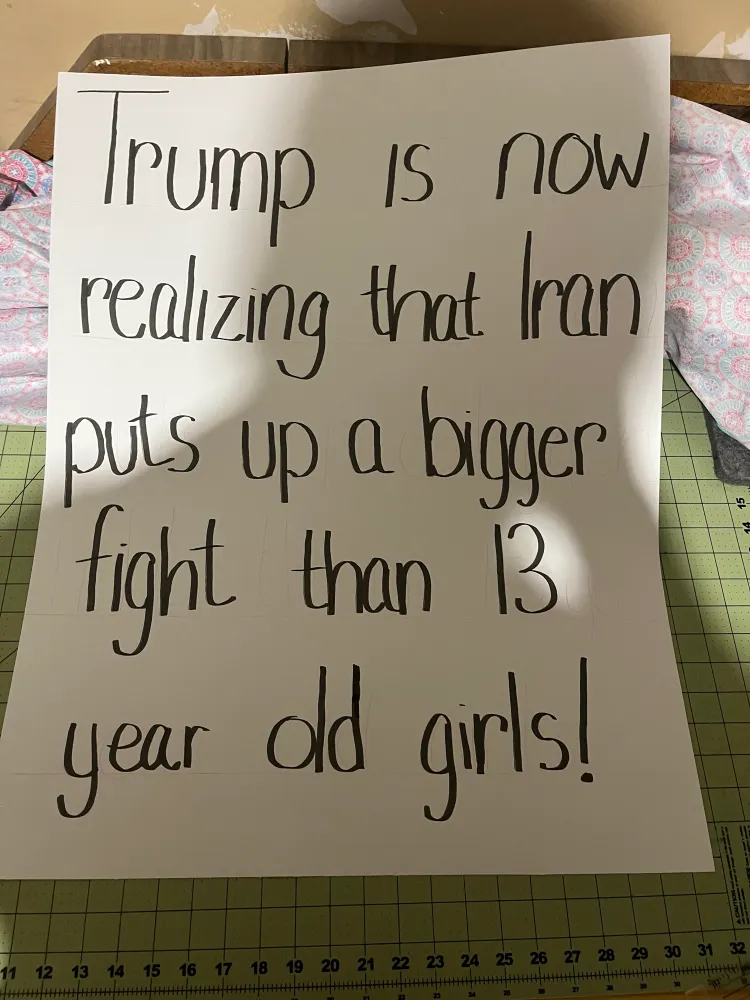 Trump is now
realizing that Iran
puts up a bigger
fight than 13
year old girls!
15
14
11 12 13 14 15 16 17 18 19 20 21 22 23 24 25 26 27 28 29 30 31 32